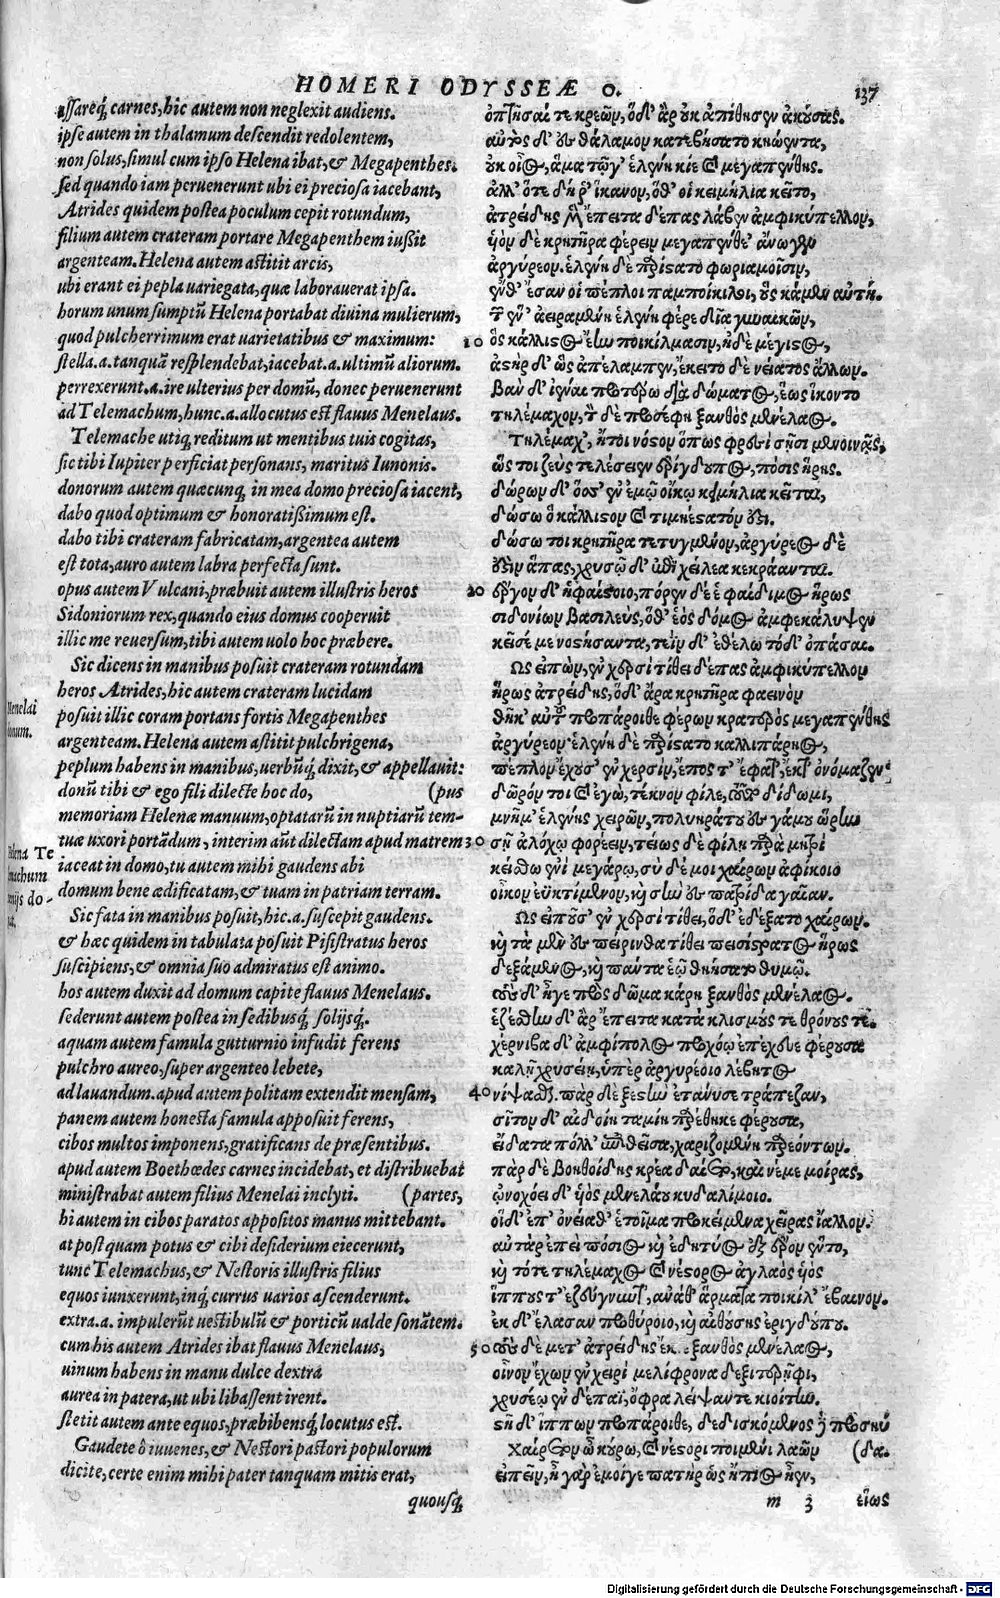 HOMERI ODYSSEÆ O. 137
assareq́; carnes, hic autem non neglexit audiens.
ipse autem in thalamum descendit redolentem,
non solus, simul cum ipso Helena ibat, & Megapenthes.
sed quando iam peruenerunt ubi ei preciosa iacebant,
Atrides quidem postea poculum cepit rotundum,
filium autem crateram portare Megapenthem iußit
argenteam. Helena autem astitit arcis,
ubi erant ei pepla uariegata, quæ laborauerat ipsa.
horum unum sumptū Helena portabat diuina mulierum,
quod pulcherrimum erat uarietatibus & maximum:
stella.a.tanquā resplendebat, iacebat.a.ultimū aliorum.
perrexerunt.a.ire ulterius per domū, donec peruenerunt
ad Telemachum, hunc.a.allocutus est flauus Menelaus.
Telemache utiq; reditum ut mentibus tuis cogitas,
sic tibi Iupiter perficiat personans, maritus Iunonis.
donorum autem quæcunq; in mea domo preciosa iacent,
dabo quod optimum & honoratißimum est.
dabo tibi crateram fabricatam, argentea autem
est tota, auro autem labra perfecta sunt.
opus autem Vulcani, præbuit autem illustris heros
Sidoniorum rex, quando eius domus cooperuit
illic me reuersum, tibi autem uolo hoc præbere.
Sic dicens in manibus posuit crateram rotundam
heros Atrides, hic autem crateram lucidam
posuit illic coram portans fortis Megapenthes
argenteam. Helena autem astitit pulchrigena,
peplum habens in manibus, uerbūq́; dixit, & appellauit:
donū tibi & ego fili dilecte hoc do, (pus
memoriam Helenæ manuum, optatarū in nuptiarū tem-
tuæ uxori portādum, interim aūt dilectam apud matrem
iaceat in domo, tu autem mihi gaudens abi
domum bene ædificatam, & tuam in patriam terram.
Sic fata in manibus posuit, hic.a.suscepit gaudens.
& hæc quidem in tabulata posuit Pisistratus heros
suscipiens, & omnia suo admiratus est animo.
hos autem duxit ad domum capite flauus Menelaus.
sederunt autem postea in sedibusq́; solijsq́;.
aquam autem famula gutturnio infudit ferens
pulchro aureo, super argenteo lebete,
ad lauandum. apud autem politam extendit mensam,
panem autem honesta famula apposuit ferens,
cibos multos imponens, gratificans de præsentibus.
apud autem Boethœdes carnes incidebat, et distribuebat
ministrabat autem filius Menelai inclyti. (partes,
hi autem in cibos paratos appositos manus mittebant.
at postquam potus & cibi desiderium eiecerunt,
tunc Telemachus, & Nestoris illustris filius
equos iunxerunt, inq́; currus uarios ascenderunt.
extra.a. impulerūt uestibulū & porticū ualde sonātem.
cum his autem Atrides ibat flauus Menelaus,
uinum habens in manu dulce dextra
aurea in patera, ut ubi libassent irent.
stetit autem ante equos, præbibensq́; locutus est.
Gaudete ô iuuenes, & Nestori pastori populorum
dicite, certe enim mihi pater tanquam mitis erat,
quousq́;
Menelai
donum.
Helena Te
ὀπτῆσαί τε κρεῶν, ὁδ' ἂρ ουκ ἀπίθησεν ἀκούσας.
αὐτὸς δ' ἐς θάλαμον κατεβήσατο κηώεντα,
οὐκ οἶος, ἅμα τῷγ' ἑλένη κίε καὶ μεγαπένθης.
ἀλλ' ὅτε δή ῥ' ἵκανον, ὅθ' οἱ κειμήλια κεῖτο,
ἀτρείδης μὲν ἔπειτα δέπας λάβεν ἀμφικύπελλον,
υἱὸν δὲ κρητῆρα φέρειν μεγαπένθε' ἄνωγεν
ἀργύρεον. ἑλένη δὲ παρίστατο φωριαμοῖσιν,
ἔνθ' ἔσαν οἱ πέπλοι παμποίκιλοι, οὓς κάμεν αὐτή.
τῶν ἕν' ἀειραμένη ἑλένη φέρε δῖα γυναικῶν,
10 ὃς κάλλιστος ἔην ποικίλμασιν, ἠδὲ μέγιστος,
ἀστὴρ δ' ὣς ἀπέλαμπεν, ἔκειτο δὲ νείατος ἄλλων.
Βὰν δ' ἰέναι προτέρω διὰ δώματος, ἕως ἵκοντο
τηλέμαχον, τὸν δὲ προσέφη ξανθὸς μενέλαος.
Τηλέμαχ', ἤτοι νόστον ὅπως φρεσὶ σῇσι μενοινᾷς,
ὥς τοι ζεὺς τελέσειεν ἐρίγδουπος, πόσις ἥρης.
δώρων δ' ὅσσ' ἐν ἐμῷ οἴκῳ κειμήλια κεῖται,
δώσω ὃ κάλλιστον καὶ τιμηέστατόν ἐστι.
δώσω τοι κρητῆρα τετυγμένον, ἀργύρεος δὲ
ἐστὶν ἅπας, χρυσῷ δ' ἐπὶ χείλεα κεκράανται.
20 ἔργον δ' ἡφαίστοιο, πόρεν δὲ ἑ φαίδιμος ἥρως
σιδονίων βασιλεὺς, ὅθ' ἑὸς δόμος ἀμφεκάλυψεν
κεῖσέ με νοστήσαντα, τεῒν δ' ἐθέλω τόδ' ὀπάσαι.
Ως εἰπὼν, ἐν χερσὶ τίθει δέπας ἀμφικύπελλον
ἥρως ἀτρείδης, ὁδ' ἄρα κρητῆρα φαεινὸν
θῆκ' αὐτοῦ προπάροιθε φέρων κρατερὸς μεγαπένθης
ἀργύρεον· ἑλένη δὲ παρίστατο καλλιπάρηος,
πέπλον ἔχουσ' ἐν χερσὶν, ἔπος τ' ἔφατ', ἔκτ' ὀνόμαζεν·
δῶρόν τοι καὶ ἐγὼ, τέκνον φίλε, τοῦτο δίδωμι,
μνῆμ' ἑλένης χειρῶν, πολυηράτου ἐς γάμου ὥρην
30 σῇ ἀλόχῳ φορέειν, τείως δὲ φίλῃ παρὰ μητρὶ
κείσθω ἐνὶ μεγάρῳ, σὺ δέ μοι χαίρων ἀφίκοιο
οἶκον ἐϋκτίμενον, καὶ σὴν ἐς πατρίδα γαῖαν.
Ως εἰποῦσ' ἐν χερσὶ τίθει, ὁδ' ἐδέξατο χαίρων.
καὶ τὰ μὲν ἐς πείρινθα τίθει πεισίστρατος ἥρως
δεξάμενος, καὶ πάντα ἑῷ θηήσατο θυμῷ.
τοὺς δ' ἦγε πρὸς δῶμα κάρη ξανθὸς μενέλαος.
ἑζέσθην δ' ἂρ ἔπειτα κατὰ κλισμούς τε θρόνους τε.
χέρνιβα δ' ἀμφίπολος προχόῳ ἐπέχευε φέρουσα
καλῇ χρυσείῃ, ὑπὲρ ἀργυρέοιο λέβητος
40 νίψασθαι. παρ δὲ ξεστὴν ἐτάνυσε τράπεζαν,
σῖτον δ' αἰδοίη ταμίη παρέθηκε φέρουσα,
εἴδατα πόλλ' ἐπιθεῖσα, χαριζομένη παρεόντων.
πὰρ δὲ βοηθοίδης κρέα δαίετο, καὶ νέμε μοίρας,
ᾠνοχόει δ' υἱὸς μενελάου κυδαλίμοιο.
οἱδ' ἐπ' ὀνείαθ' ἑτοῖμα προκείμενα χεῖρας ἴαλλον.
αὐτὰρ ἐπεὶ πόσιος καὶ ἐδητύος ἐξ ἔρον ἕντο,
καὶ τότε τηλέμαχος καὶ νέστορος ἀγλαὸς υἱὸς
ἵππους τ' ἐζεύγνυντ', ἀνάθ' ἅρματα ποικίλ' ἔβαινον.
ἐκ δ' ἔλασαν προθύροιο, καὶ αἰθούσης ἐριγδούπου.
50 τοὺς δὲ μετ' ἀτρείδης ἔκιε ξανθὸς μενέλαος,
οἶνον ἔχων ἐν χειρὶ μελίφρονα δεξιτερῆφι,
χρυσέῳ ἐν δέπαϊ, ὄφρα λείψαντε κιοίτην.
στῆ δ' ἵππων προπάροιθε, δεδισκόμενος δὲ προσηύ
Χαίρετον ὦ κούρω, καὶ νέστορι ποιμένι λαῶν (δα.
εἰπεῖν, ἦ γὰρ ἔμοιγε πατὴρ ὣς ἤπιος ἦεν,
m 3 εἵως
Digitalisierung gefördert durch die Deutsche Forschungsgemeinschaft - DFG